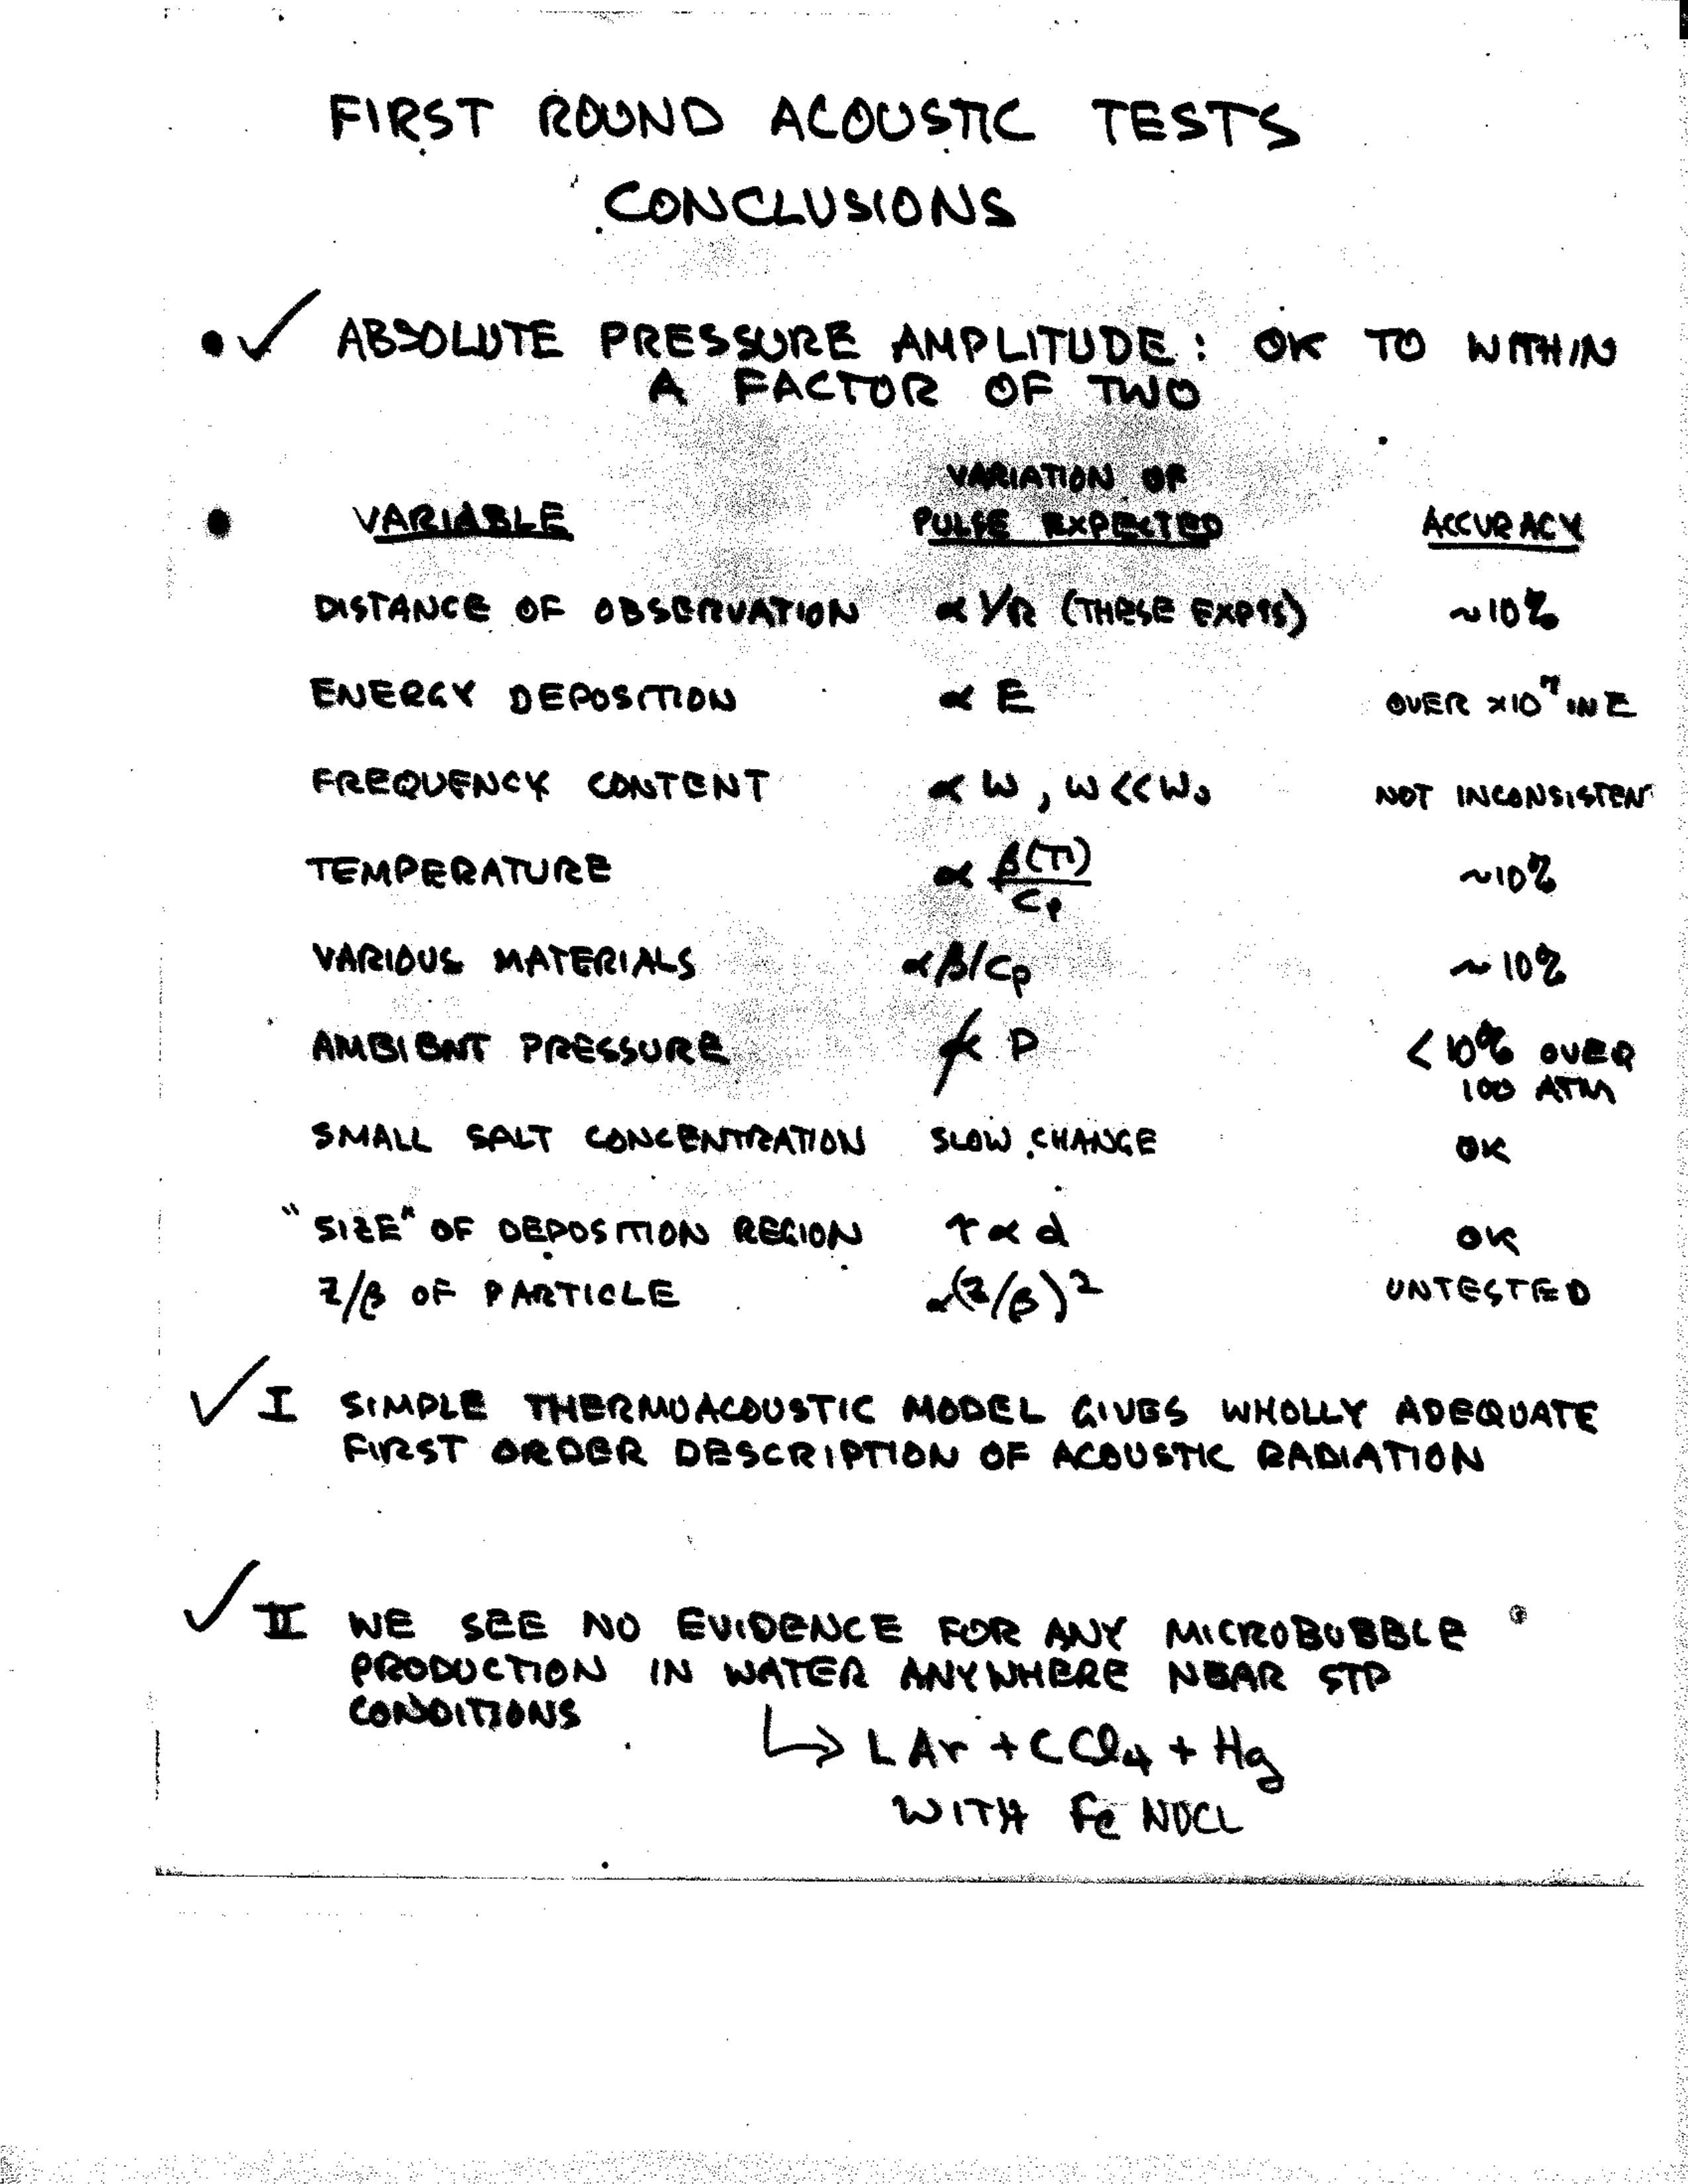 FIRST ROUND ACOUSTIC TESTS
CONCLUSIONS
• ✓ ABSOLUTE PRESSURE AMPLITUDE: OK TO WITHIN
A FACTOR OF TWO
VARIATION OF
• VARIABLE PULSE EXPECTED ACCURACY
DISTANCE OF OBSERVATION ∝ 1/R (THESE EXPTS) ~10%
ENERGY DEPOSITION ∝ E OVER ×10⁷ IN E
FREQUENCY CONTENT ∝ ω, ω << ω₀ NOT INCONSISTENT
TEMPERATURE ∝ β(T)/Cp ~10%
VARIOUS MATERIALS ∝ β/Cp ~10%
AMBIENT PRESSURE ∝̸ P < 10% OVER
100 ATM
SMALL SALT CONCENTRATION SLOW CHANGE OK
"SIZE" OF DEPOSITION REGION τ ∝ d OK
Z/β OF PARTICLE ∝ (Z/β)² UNTESTED
✓ I SIMPLE THERMOACOUSTIC MODEL GIVES WHOLLY ADEQUATE
FIRST ORDER DESCRIPTION OF ACOUSTIC RADIATION
✓ II WE SEE NO EVIDENCE FOR ANY MICROBUBBLE
PRODUCTION IN WATER ANYWHERE NEAR STP
CONDITIONS
↳ LAr + CCl₄ + Hg
WITH Fe NUCL